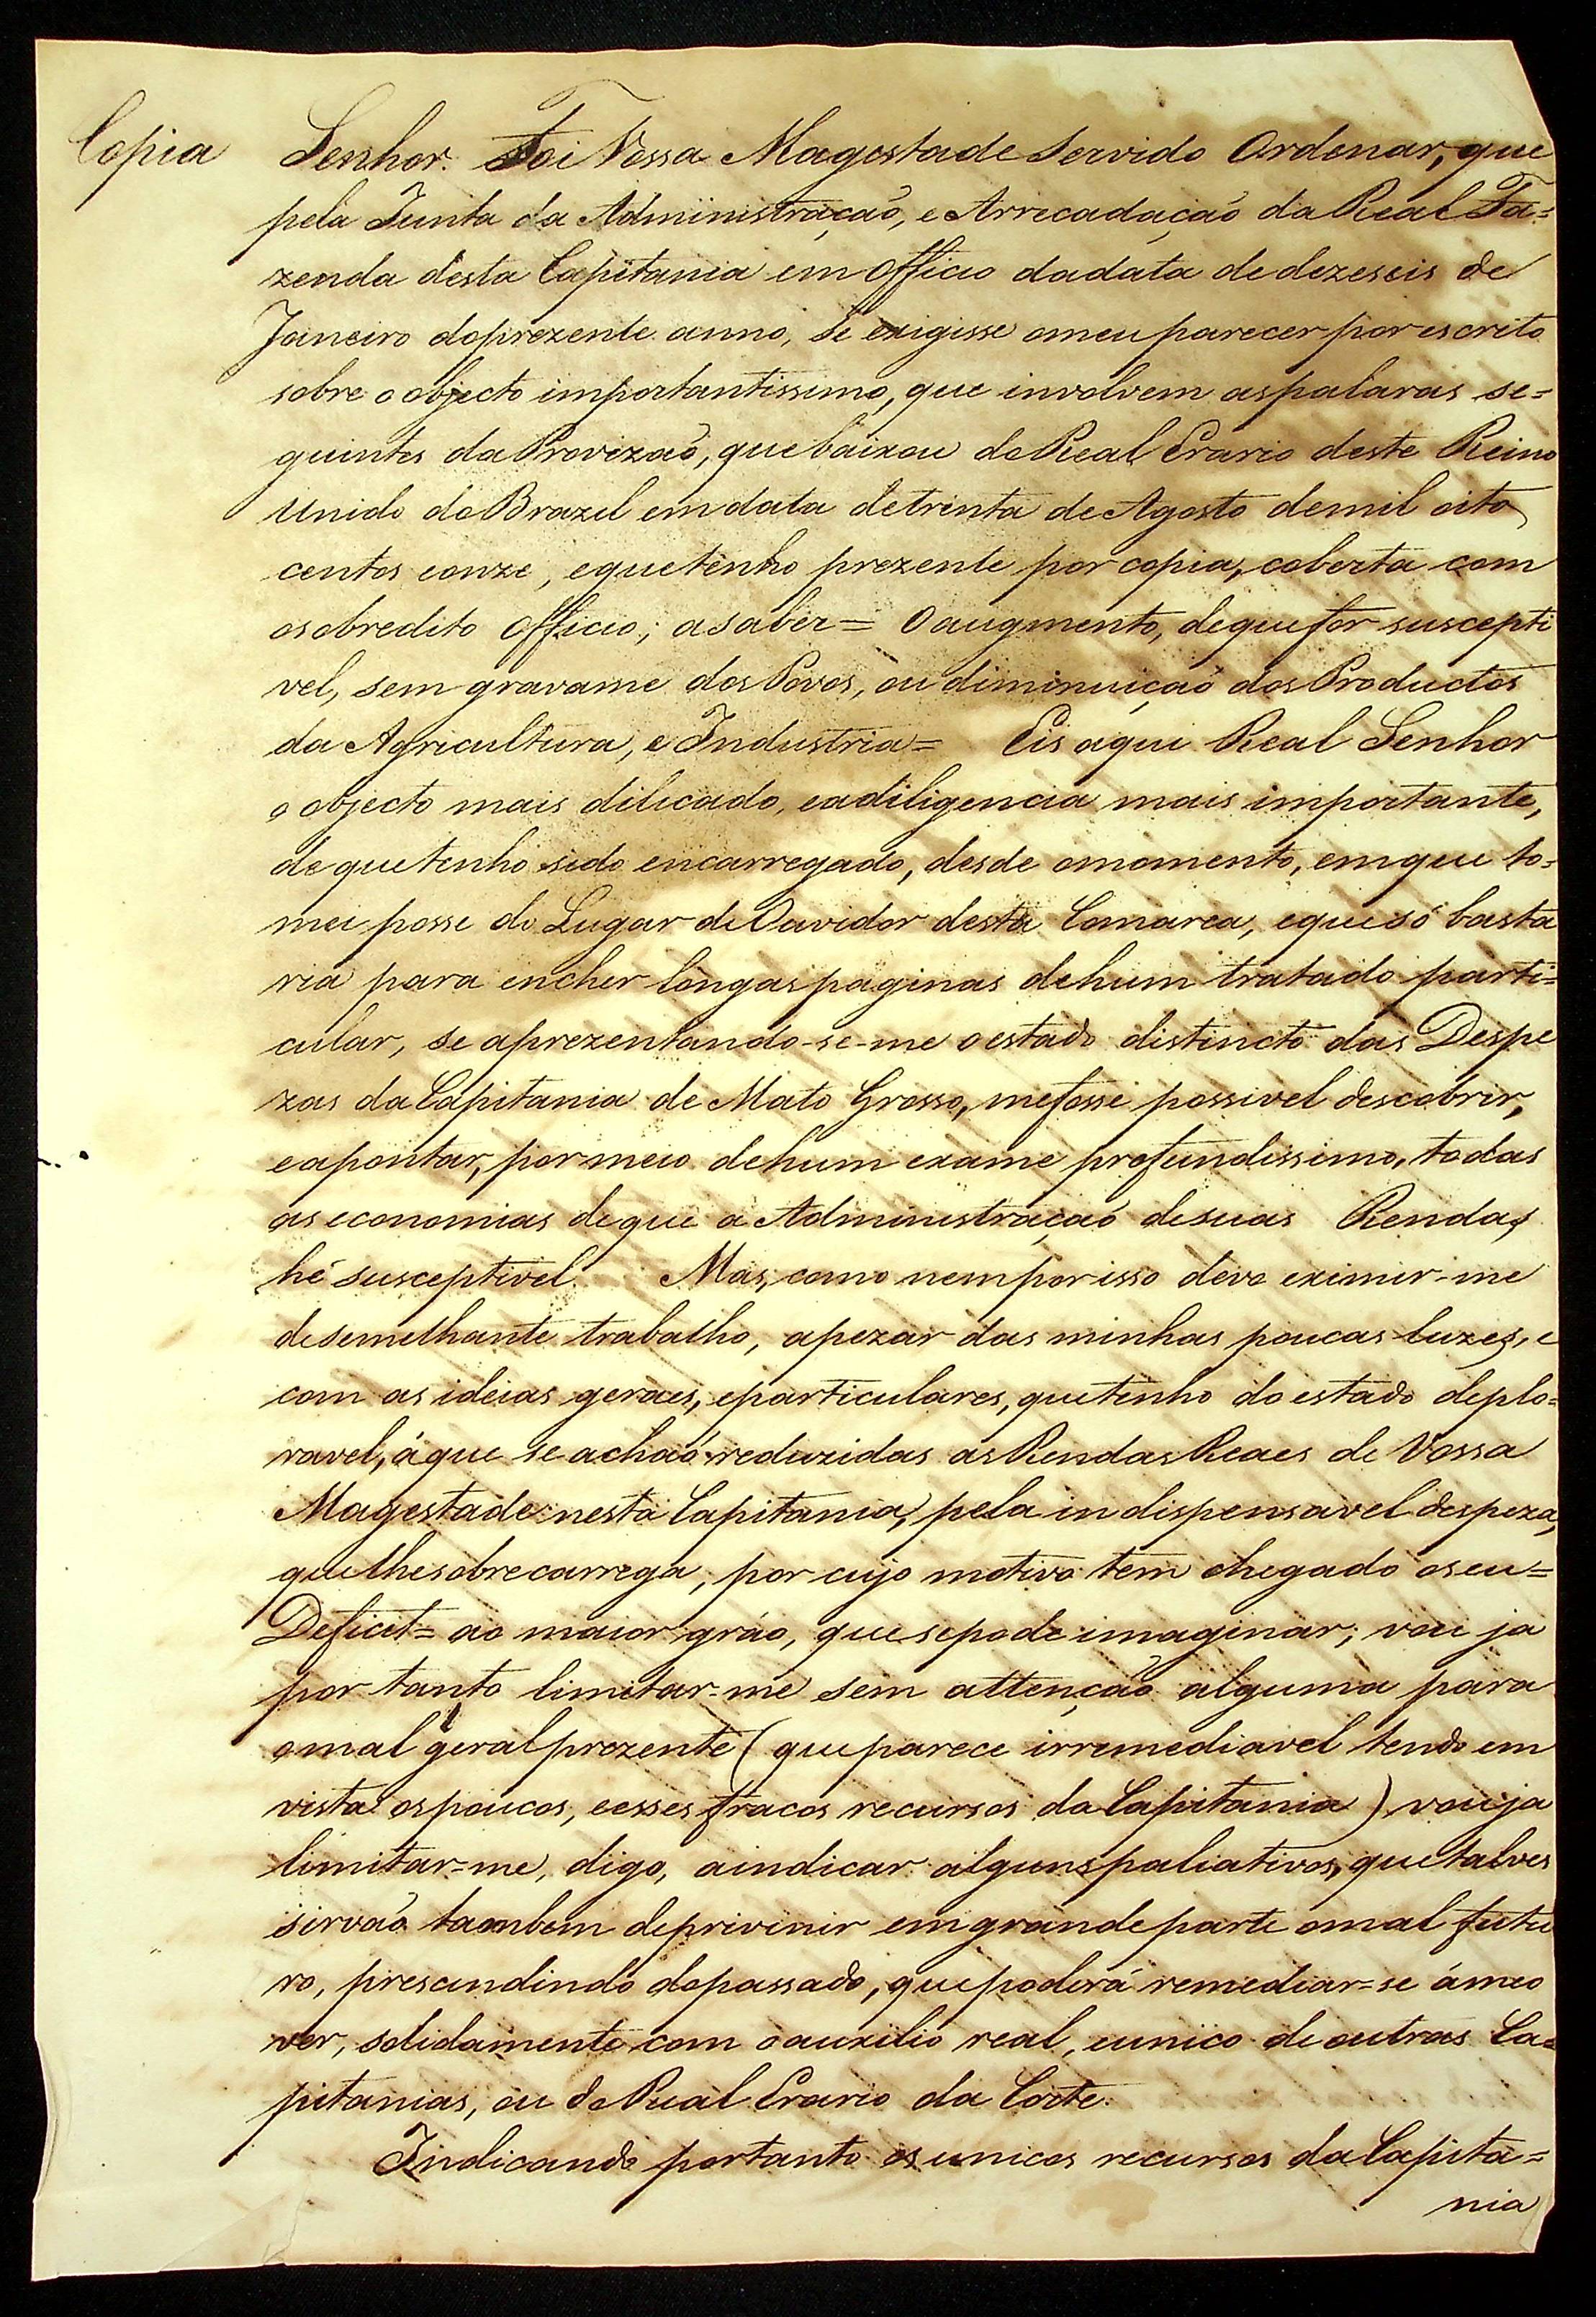 Copia Senhor. Foi Vossa Magestade Servido Ordenar, que
pela Junta da Administração, e Arrecadação da Real Fa=
zenda desta Capitania em Officio dadata de dezeseis de
Janeiro doprezente anno, se exigisse omeu parecer por escrito
sobre o objecto importantissimo, que involvem aspalavras se=
guintes da Provizaõ, que baixou do Real Erario deste Reino
Unido do Brazil emdata detrinta de Agosto demil oito
centos eonze, equetenho prezente por copia, coberta com
osobredito Officio; asaber= O augmento, dequefor suscepti
vel, sem gravame dos Povos, ou diminuiçaõ dos Productos
da Agricultura, e Industria= Eis aqui Real Senhor
o objecto mais dilicado, eadiligencia mais importante,
de que tenho sido encarregado, desde omomento, emque to=
mei posse do Lugar de Ouvidor desta Comarca, eque só basta
ria para encher longas paginas dehum tratado parti=
cular, se aprezentando-se-me oestado distincto das Despe
zas da Capitania de Mato Grosso, mefosse possivel descobrir,
eapontar, por meio dehum exame profundissimo, todas
as economias deque a Administraçaõ desuas Rendas
hé susceptivel. Mas, como nemporisso devo eximir-me
desemelhante trabalho, apezar das minhas poucas luzes, e
com as idéias geraes, eparticulares, quetenho do estado deplo=
ravel, á que se achaõ reduzidas as Rendas Reaes de Vossa
Magestade nesta Capitania, pela indispensavel despeza,
que lhesobrecarrega, por cujo motivo tem chegado oseu=
Deficit= ao maior gráo, que sepode imaginar; vou ja
por tanto limitar-me sem attençaõ alguma para
omal geral prezente (que parece irremediavel tendo em
vista ospoucos, eesses fracos recursos da Capitania) vou ja
limitar=me, digo, aindicar alguns paliativos, que talves
sirvaõ tambem deprivinir emgrandeparte omal futu
ro, prescindindo dopassado, quepoderá remediar=se ámeo
ver, solidamente com oauxilio real, eunico de outras Ca=
pitanias, ou do Real Erario da Corte.
Indicando portanto os unicos recursos da Capita=
nia